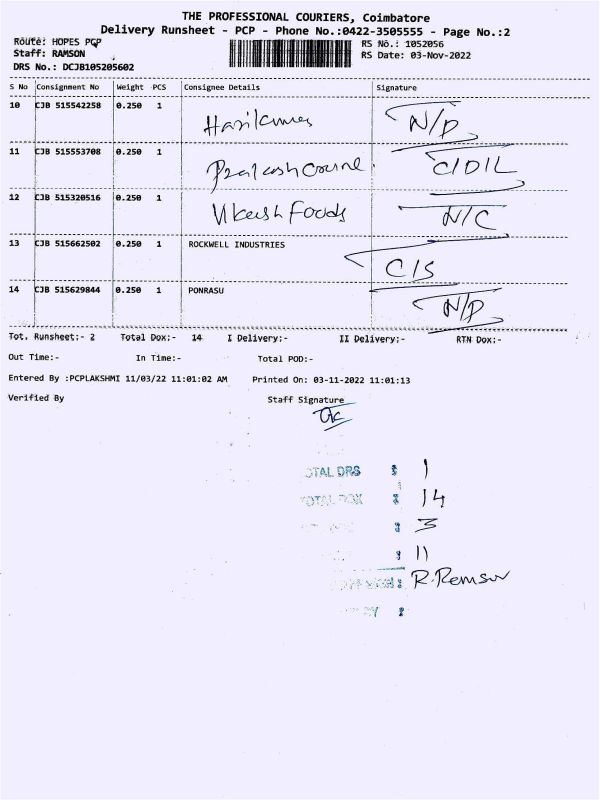 THE PROFESSIONAL COURIERS, Coimbatore
Delivery Runsheet - PCP - Phone No.:0422-3505555 - Page No.:2
Route: HOPES PCP
RS No.: 1052056
Staff: RAMSON
RS Date: 03-Nov-2022
DRS No.: DCJB105205602
S No Consignment No Weight PCS Consignee Details Signature
10 CJB 515542258 0.250 1 Harikumar N/P
11 CJB 515553708 0.250 1 C/D/L
12 CJB 515320516 0.250 1 Vikash Foods N/C
13 CJB 515662502 0.250 1 ROCKWELL INDUSTRIES C/S
14 CJB 515629844 0.250 1 PONRASU N/P
Tot. Runsheet:- 2 Total Dox:- 14 I Delivery:- II Delivery:- RTN Dox:-
Out Time:- In Time:- Total POD:-
Entered By :PCPLAKSHMI 11/03/22 11:01:02 AM Printed On: 03-11-2022 11:01:13
Verified By Staff Signature
TOTAL DRS : 1
TOTAL DOX : 14
: 3
: 11
: R. Ramson
: